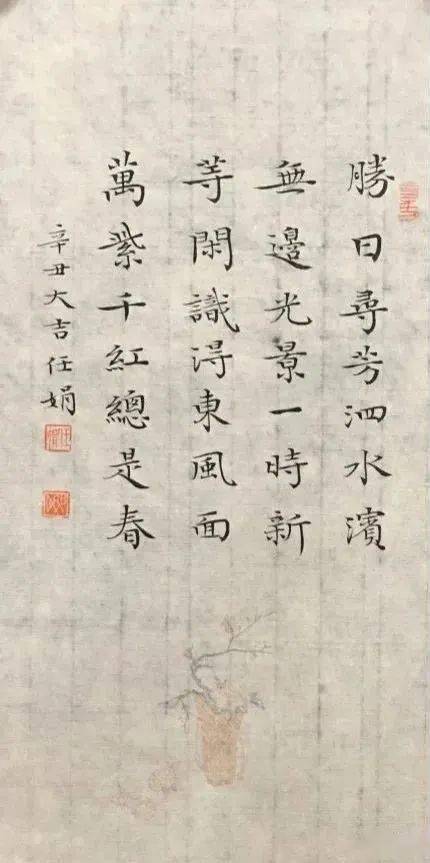 勝日尋芳泗水濱
無邊光景一時新
等閑識淂東風面
萬紫千紅總是春
辛丑大吉任娟